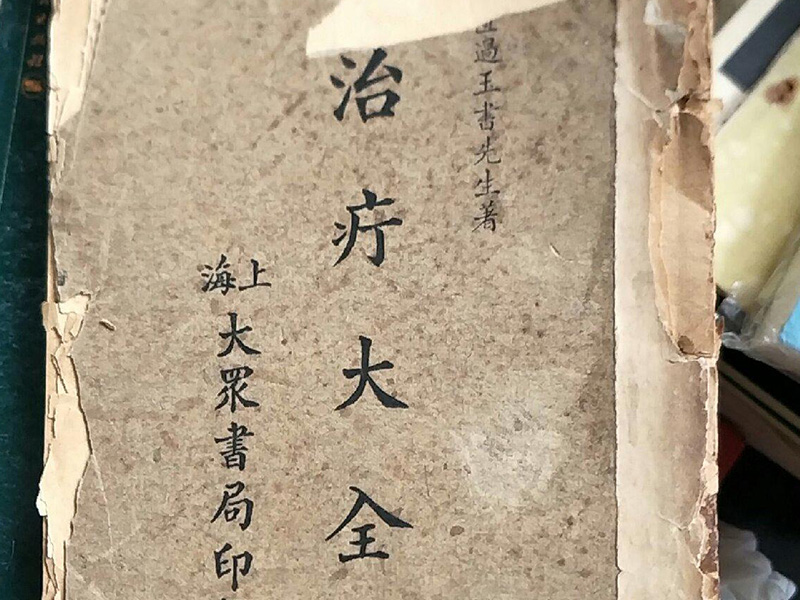 過王書先生著
治疔大全
上海
大眾書局印